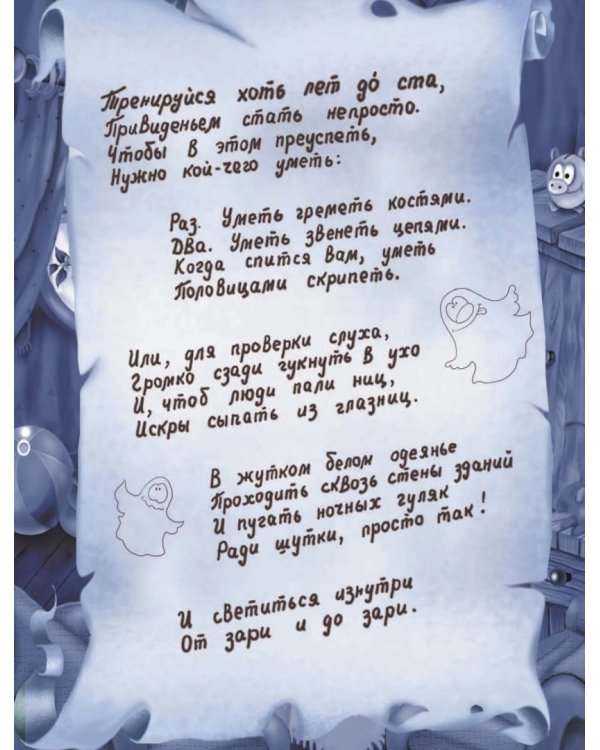 Тренируйся хоть лет до ста,
Привиденьем стать непросто.
Чтобы в этом преуспеть,
Нужно кой-чего уметь:
Раз. Уметь греметь костями.
Два. Уметь звенеть цепями.
Когда спится вам, уметь
Половицами скрипеть.
Или, для проверки слуха,
Громко сзади гукнуть в ухо
И, чтоб люди пали ниц,
Искры сыпать из глазниц.
В жутком белом одеянье
Проходить сквозь стены зданий
И пугать ночных гуляк
Ради шутки, просто так!
И светиться изнутри
От зари и до зари.